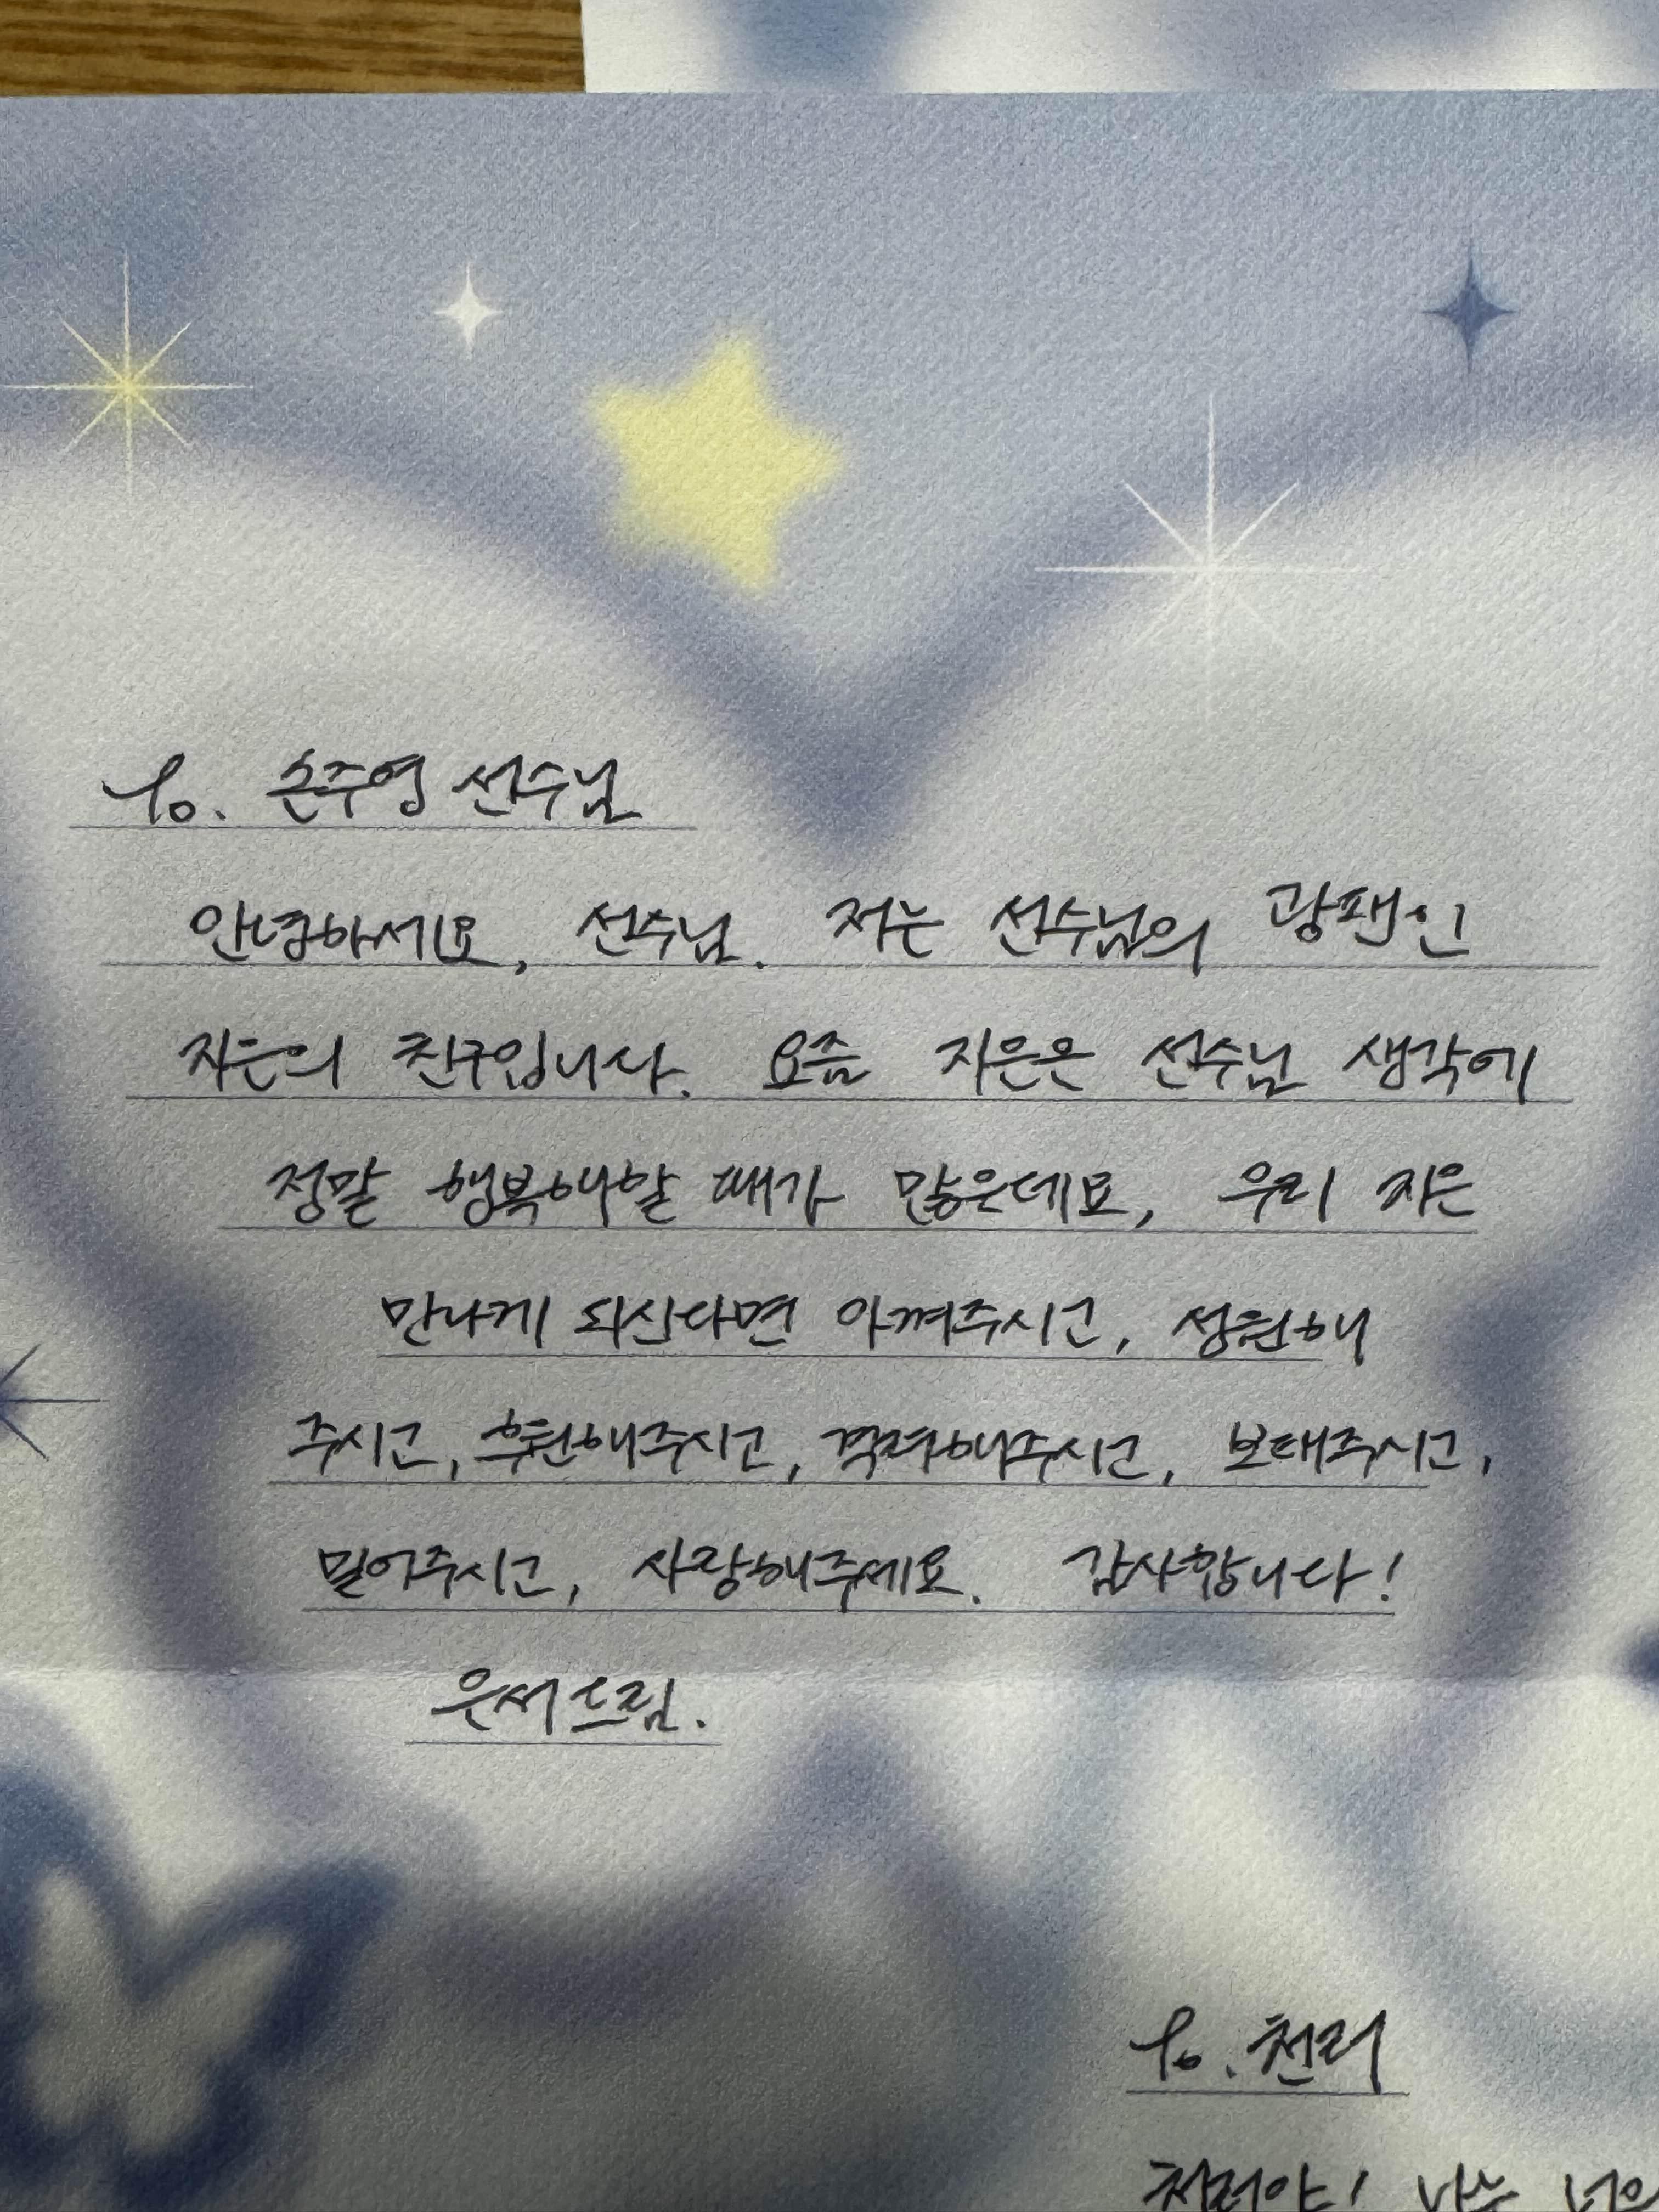 to. 손주영 선수님
안녕하세요, 선수님. 저는 선수님의 광팬인
지은의 친구입니다. 요즘 지은은 선수님 생각에
정말 행복해할 때가 많은데요, 우리 지은
만나게 되신다면 아껴주시고, 성원해
주시고, 후원해주시고, 격려해주시고, 보태주시고,
밀어주시고, 사랑해주세요. 감사합니다!
은서 드림.
to. 천러
천러야! 나는 너의